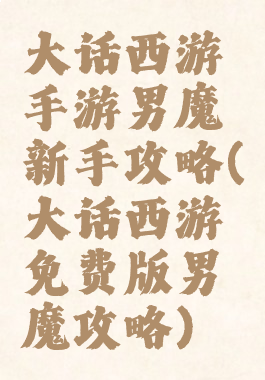 大话西游
手游男魔
新手攻略(
大话西游
免费版男
魔攻略)